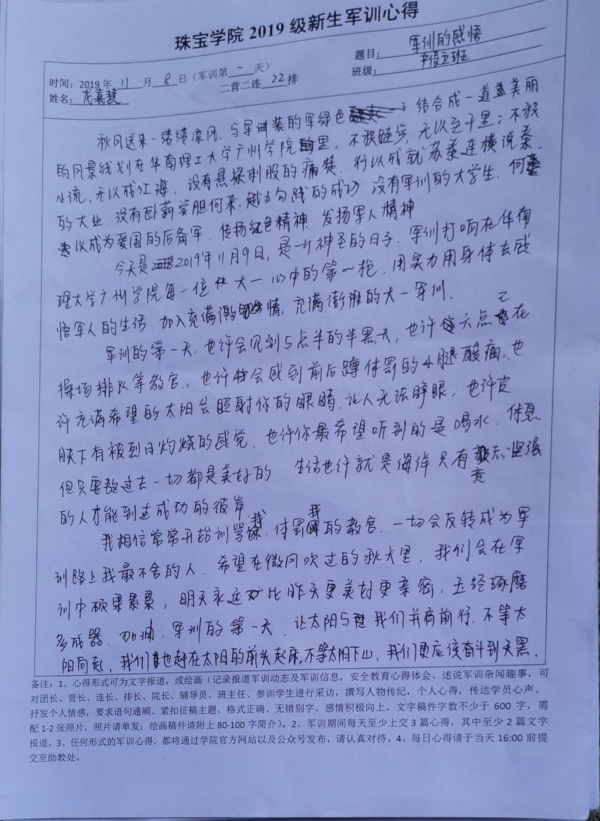 珠宝学院 2019 级新生军训心得
时间：2019 年 11 月 8 日（军训第一天）
题目：军训的感悟
姓名：龙嘉慧 二营二连 22 排 班级：
秋风送来一绺绺凉风，与军训装的军绿色结合成一道美丽
的风景线划在华南理工大学广州学院里，不积跬步，无以至千里；不积
小流，无以成江海，没有悬梁刺股的痛楚，何以成就苏秦连横说秦
的大业，没有卧薪尝胆何来越王勾践的成功，没有军训的大学生，何
以成为爱国的后备军，传扬红色精神，发扬军人精神
今天是2019年11月9日，是一片神圣的日子，军训打响在华南
理大学广州学院每一位大一心中的第一枪，用实力用身体去感
悟军人的生活，加入充满激情，充满澎湃的大一军训．
军训的第一天，也许会见到5点半的半黑天，也许六点已在
操场排队等教官，也许会感到前后蹲体罚的小腿酸痛，也
许充满希望的太阳会照射你的眼睛，让人无法睁眼，也许皮
肤下有被烈日灼烧的感觉，也许你最希望听到的是喝水，休息
但只要熬过去一切都是美好的 生活也许就是海洋只有意志坚强
的人才能到达成功的彼岸
我相信常常开始训骂我，体罚我的教官，一切会反转成为军
训路上我最不舍的人，希望在微风吹过的秋天里，我们会在军
训中硕果累累，明天永远好比昨天更美好更亲密，玉经琢磨
多成器，加油，军训的第一天，让太阳与我们并肩前行，不等太
阳向起，我们也赶在太阳的前头起床，不等太阳下山，我们更应该奋斗到天黑．
备注：1、心得形式可为文字报道，或绘画（记录报道军训动态及军训信息，安全教育心得体会、述说军训杂闻趣事，可
对团长、营长、连长、排长、院长、辅导员、班主任、参训学生进行采访，撰写人物传纪，个人心得，传达学员心声、
抒发个人情感，要求语句通顺、紧扣征稿主题、格式正确、无错别字、感情积极向上。文字稿件字数不少于 600 字，需
配 1-2 张照片，照片请单发；绘画稿件请附上 80-100 字简介）。2、军训期间每天至少上交 3 篇心得，其中至少 2 篇文字
报道。3、任何形式的军训心得，都将通过学院官方网站以及公众号发布，请认真对待。4、每日心得请于当天 16:00 前提
交至助教处。